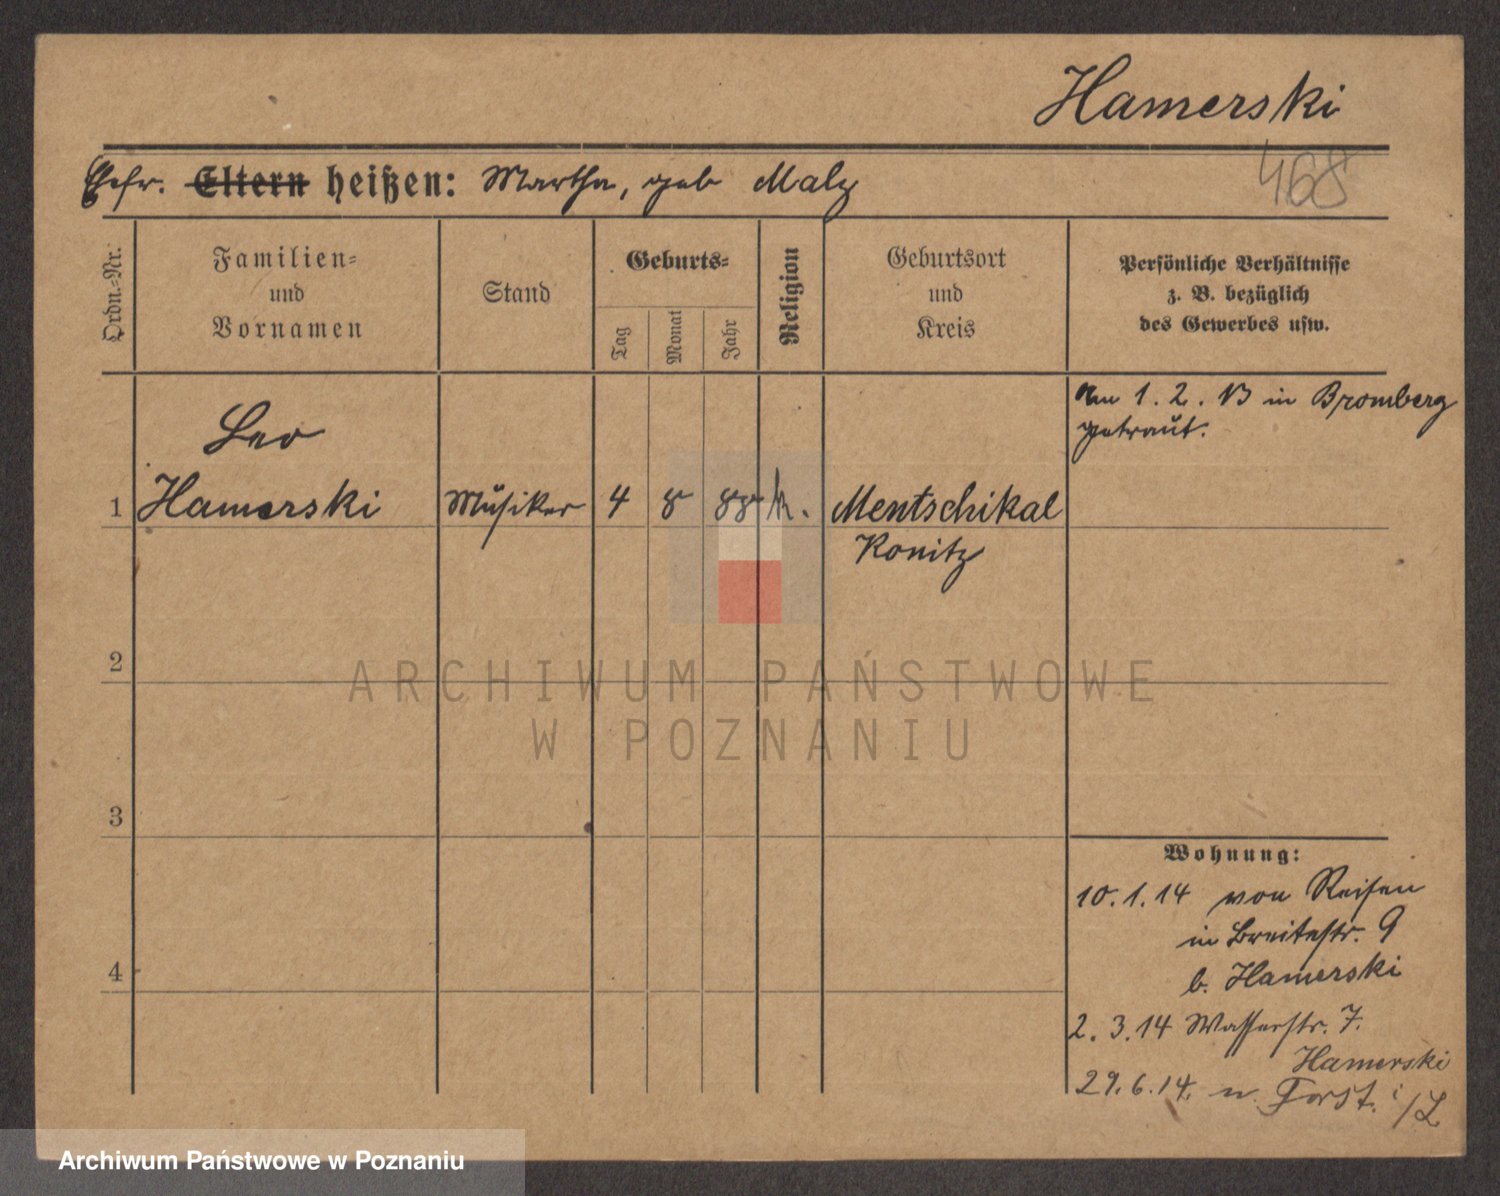 Hamerski
468
Ehefr. Eltern heißen: Martha, geb Malz
Ordn.-Nr.
Familien-
und
Vornamen
Stand
Geburts-
Tag
Monat
Jahr
Religion
Geburtsort
und
Kreis
Persönliche Verhältnisse
z. B. bezüglich
des Gewerbes usw.
Am 1. 2. 13 in Bromberg
getraut.
Leo
1 Hamerski Musiker 4 8 88 k. Mentschikal
Konitz
2
3
4
Wohnung:
10. 1. 14 von Reisen
in Breitestr. 9
b. Hamerski
2. 3. 14 Wasserstr. 7.
Hamerski
29. 6. 14. n. Forst. i/L
ARCHIWUM PAŃSTWOWE
W POZNANIU
Archiwum Państwowe w Poznaniu